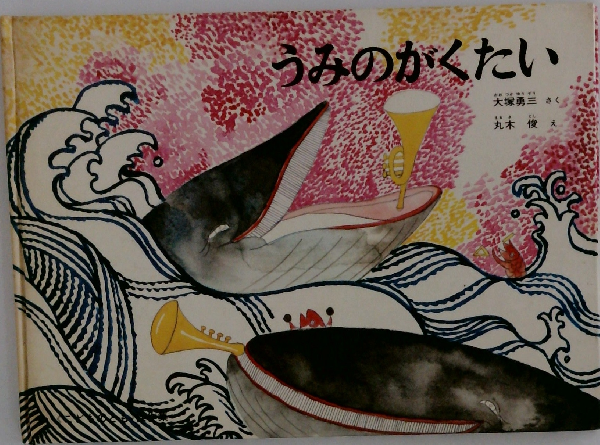 うみのがくたい
大塚勇三 さく
丸木 俊 え